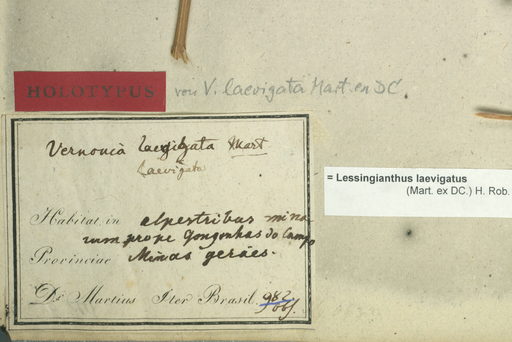 HOLOTYPUS von V. laevigata Mart. ex DC.
Vernonia laevigata Mart
laevigata
= Lessingianthus laevigatus
(Mart. ex DC.) H. Rob.
Habitat in alpestribus mina
rum prope Gongonhas do Campo
Provinciae Minas geraës.
Dr. Martius Iter Brasil. 982
obs.